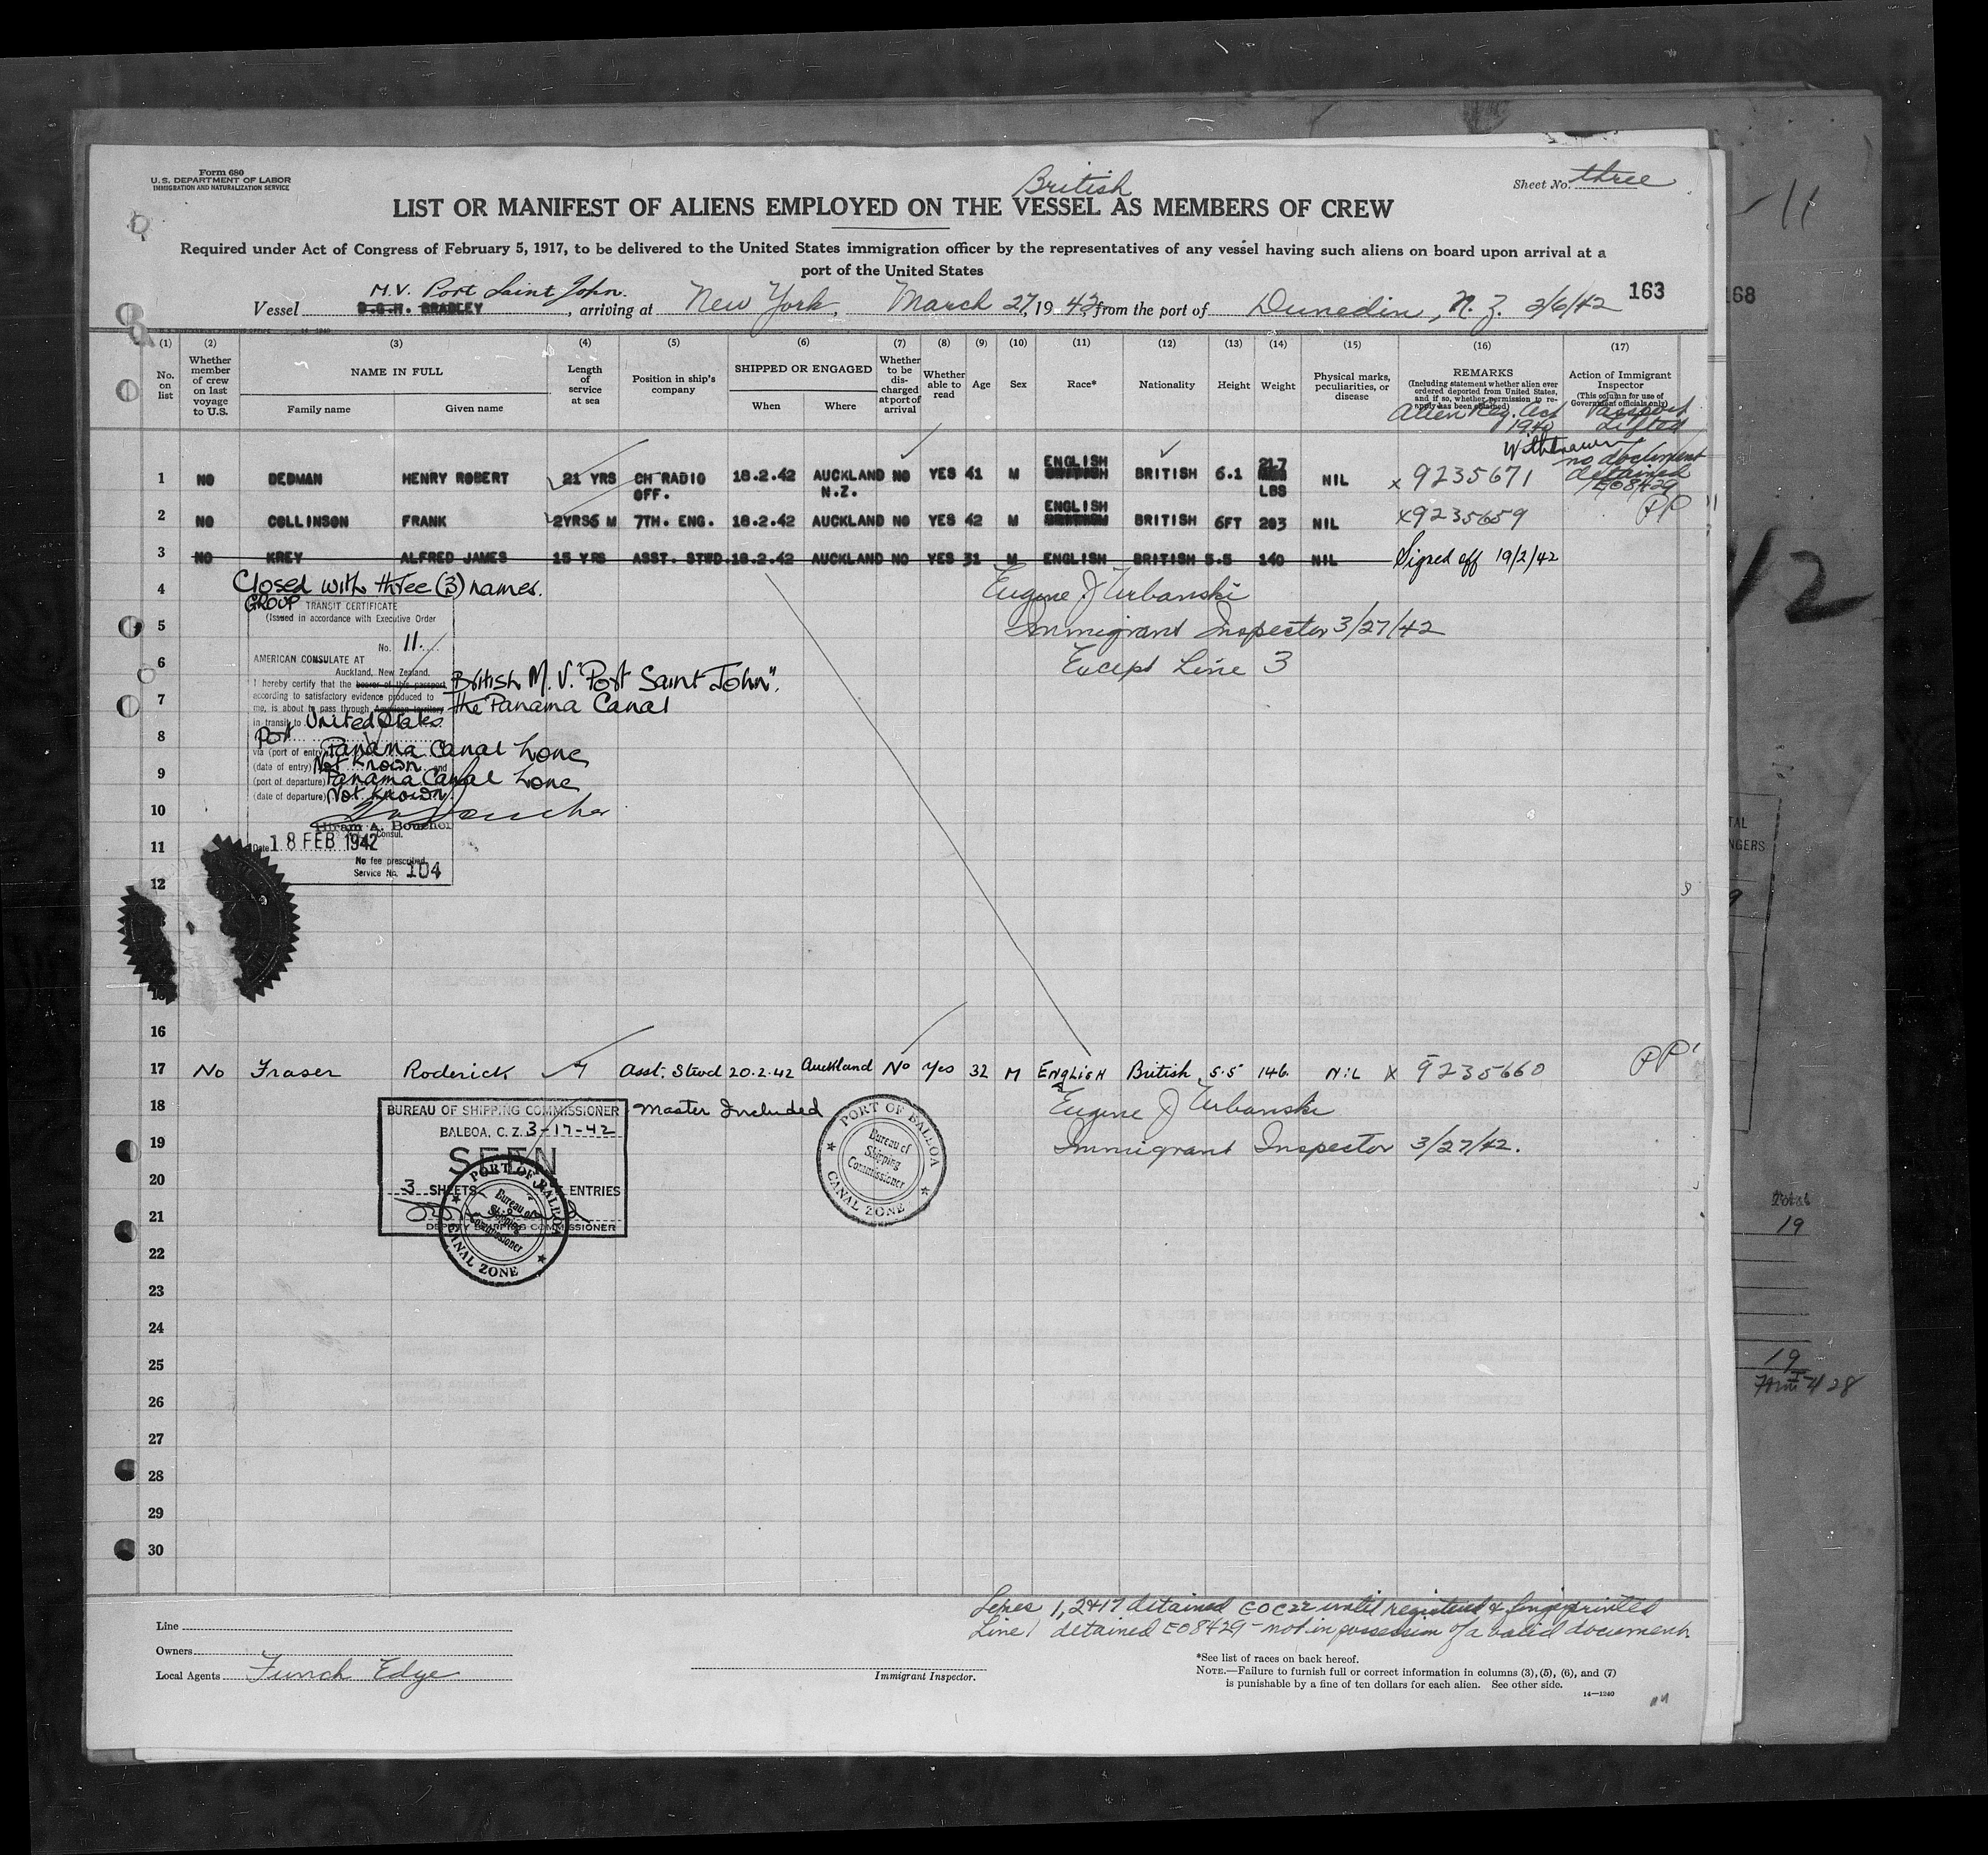 Form 680
U. S. DEPARTMENT OF LABOR
IMMIGRATION AND NATURALIZATION SERVICE
Sheet No. three
British
LIST OR MANIFEST OF ALIENS EMPLOYED ON THE VESSEL AS MEMBERS OF CREW
Required under Act of Congress of February 5, 1917, to be delivered to the United States immigration officer by the representatives of any vessel having such aliens on board upon arrival at a
port of the United States
M.V. Port Saint John.
Vessel BRADLEY, arriving at New York, March 27, 1942, from the port of Dunedin, N. Z. 2/6/42 163
168
(1) (2) (3) (4) (5) (6) (7) (8) (9) (10) (11) (12) (13) (14) (15) (16) (17)
No. on list
Whether member of crew on last voyage to U.S.
NAME IN FULL
Family name Given name
Length of service at sea
Position in ship's company
SHIPPED OR ENGAGED
When Where
Whether to be discharged at port of arrival
Whether able to read
Age
Sex
Race*
Nationality
Height
Weight
Physical marks, peculiarities, or disease
REMARKS
(Including statement whether alien ever ordered deported from United States, and if so, whether permission to reapply has been obtained)
Action of Immigrant Inspector
(This column for use of Government officials only)
Alien Reg. Act 1940
Passport Lifted
Withdrawn
no document
detained
EO8429
1 NO DEDMAN HENRY ROBERT 21 YRS CH RADIO OFF. 18.2.42 AUCKLAND N.Z. NO YES 41 M ENGLISH BRITISH 6.1 217 LBS NIL x 9235671
2 NO COLLINSON FRANK 2YRS6 M 7TH. ENG. 18.2.42 AUCKLAND NO YES 42 M ENGLISH BRITISH 6FT 203 NIL x9235659 PP
3 NO KREY ALFRED JAMES 15 YRS ASST. STWD. 18.2.42 AUCKLAND NO YES 31 M ENGLISH BRITISH 5.5 140 NIL Signed off 19/2/42
4 Closed with three (3) names. Eugene J Urbanski
GROUP TRANSIT CERTIFICATE
(Issued in accordance with Executive Order
5 Immigrant Inspector 3/27/42
No. 11.
6 Except Line 3
AMERICAN CONSULATE AT
Auckland, New Zealand.
I hereby certify that the bearer of this passport British M.V. "Port Saint John".
according to satisfactory evidence produced to
7
me, is about to pass through American territory the Panama Canal
in transit to United States
8 Port
via (port of entry) Panama Canal Zone
9
(date of entry) Not Known and
(port of departure) Panama Canal Zone
(date of departure) Not Known
10
Hiram A. Boucher
Consul.
11
Date 18 FEB 1942
No fee prescribed
Service No. 104
12
16
17 No Fraser Roderick 7 Asst. Stwd 20.2.42 Auckland No Yes 32 M ENGLISH British 5.5 146 NIL x 9235660 PP
18 Master Included Eugene J Urbanski
19 Immigrant Inspector 3/27/42.
BUREAU OF SHIPPING COMMISSIONER
BALBOA, C. Z. 3-17-42
SEEN
3 SHEETS ENTRIES
DEPUTY SHIPPING COMMISSIONER
PORT OF BALBOA
Bureau of Shipping Commissioner
CANAL ZONE
PORT OF BALBOA
Bureau of Shipping Commissioner
CANAL ZONE
20
21
22
23
24
25
26
27
28
29
30
Total
19
19
Lines 1, 2 & 17 detained EOC22 until registered & fingerprinted
Line 1 detained EO8429 - not in possession of a valid document.
Line
Owners
Local Agents Funch Edye
Immigrant Inspector.
*See list of races on back hereof.
NOTE.—Failure to furnish full or correct information in columns (3), (5), (6), and (7)
is punishable by a fine of ten dollars for each alien. See other side.
14—1240